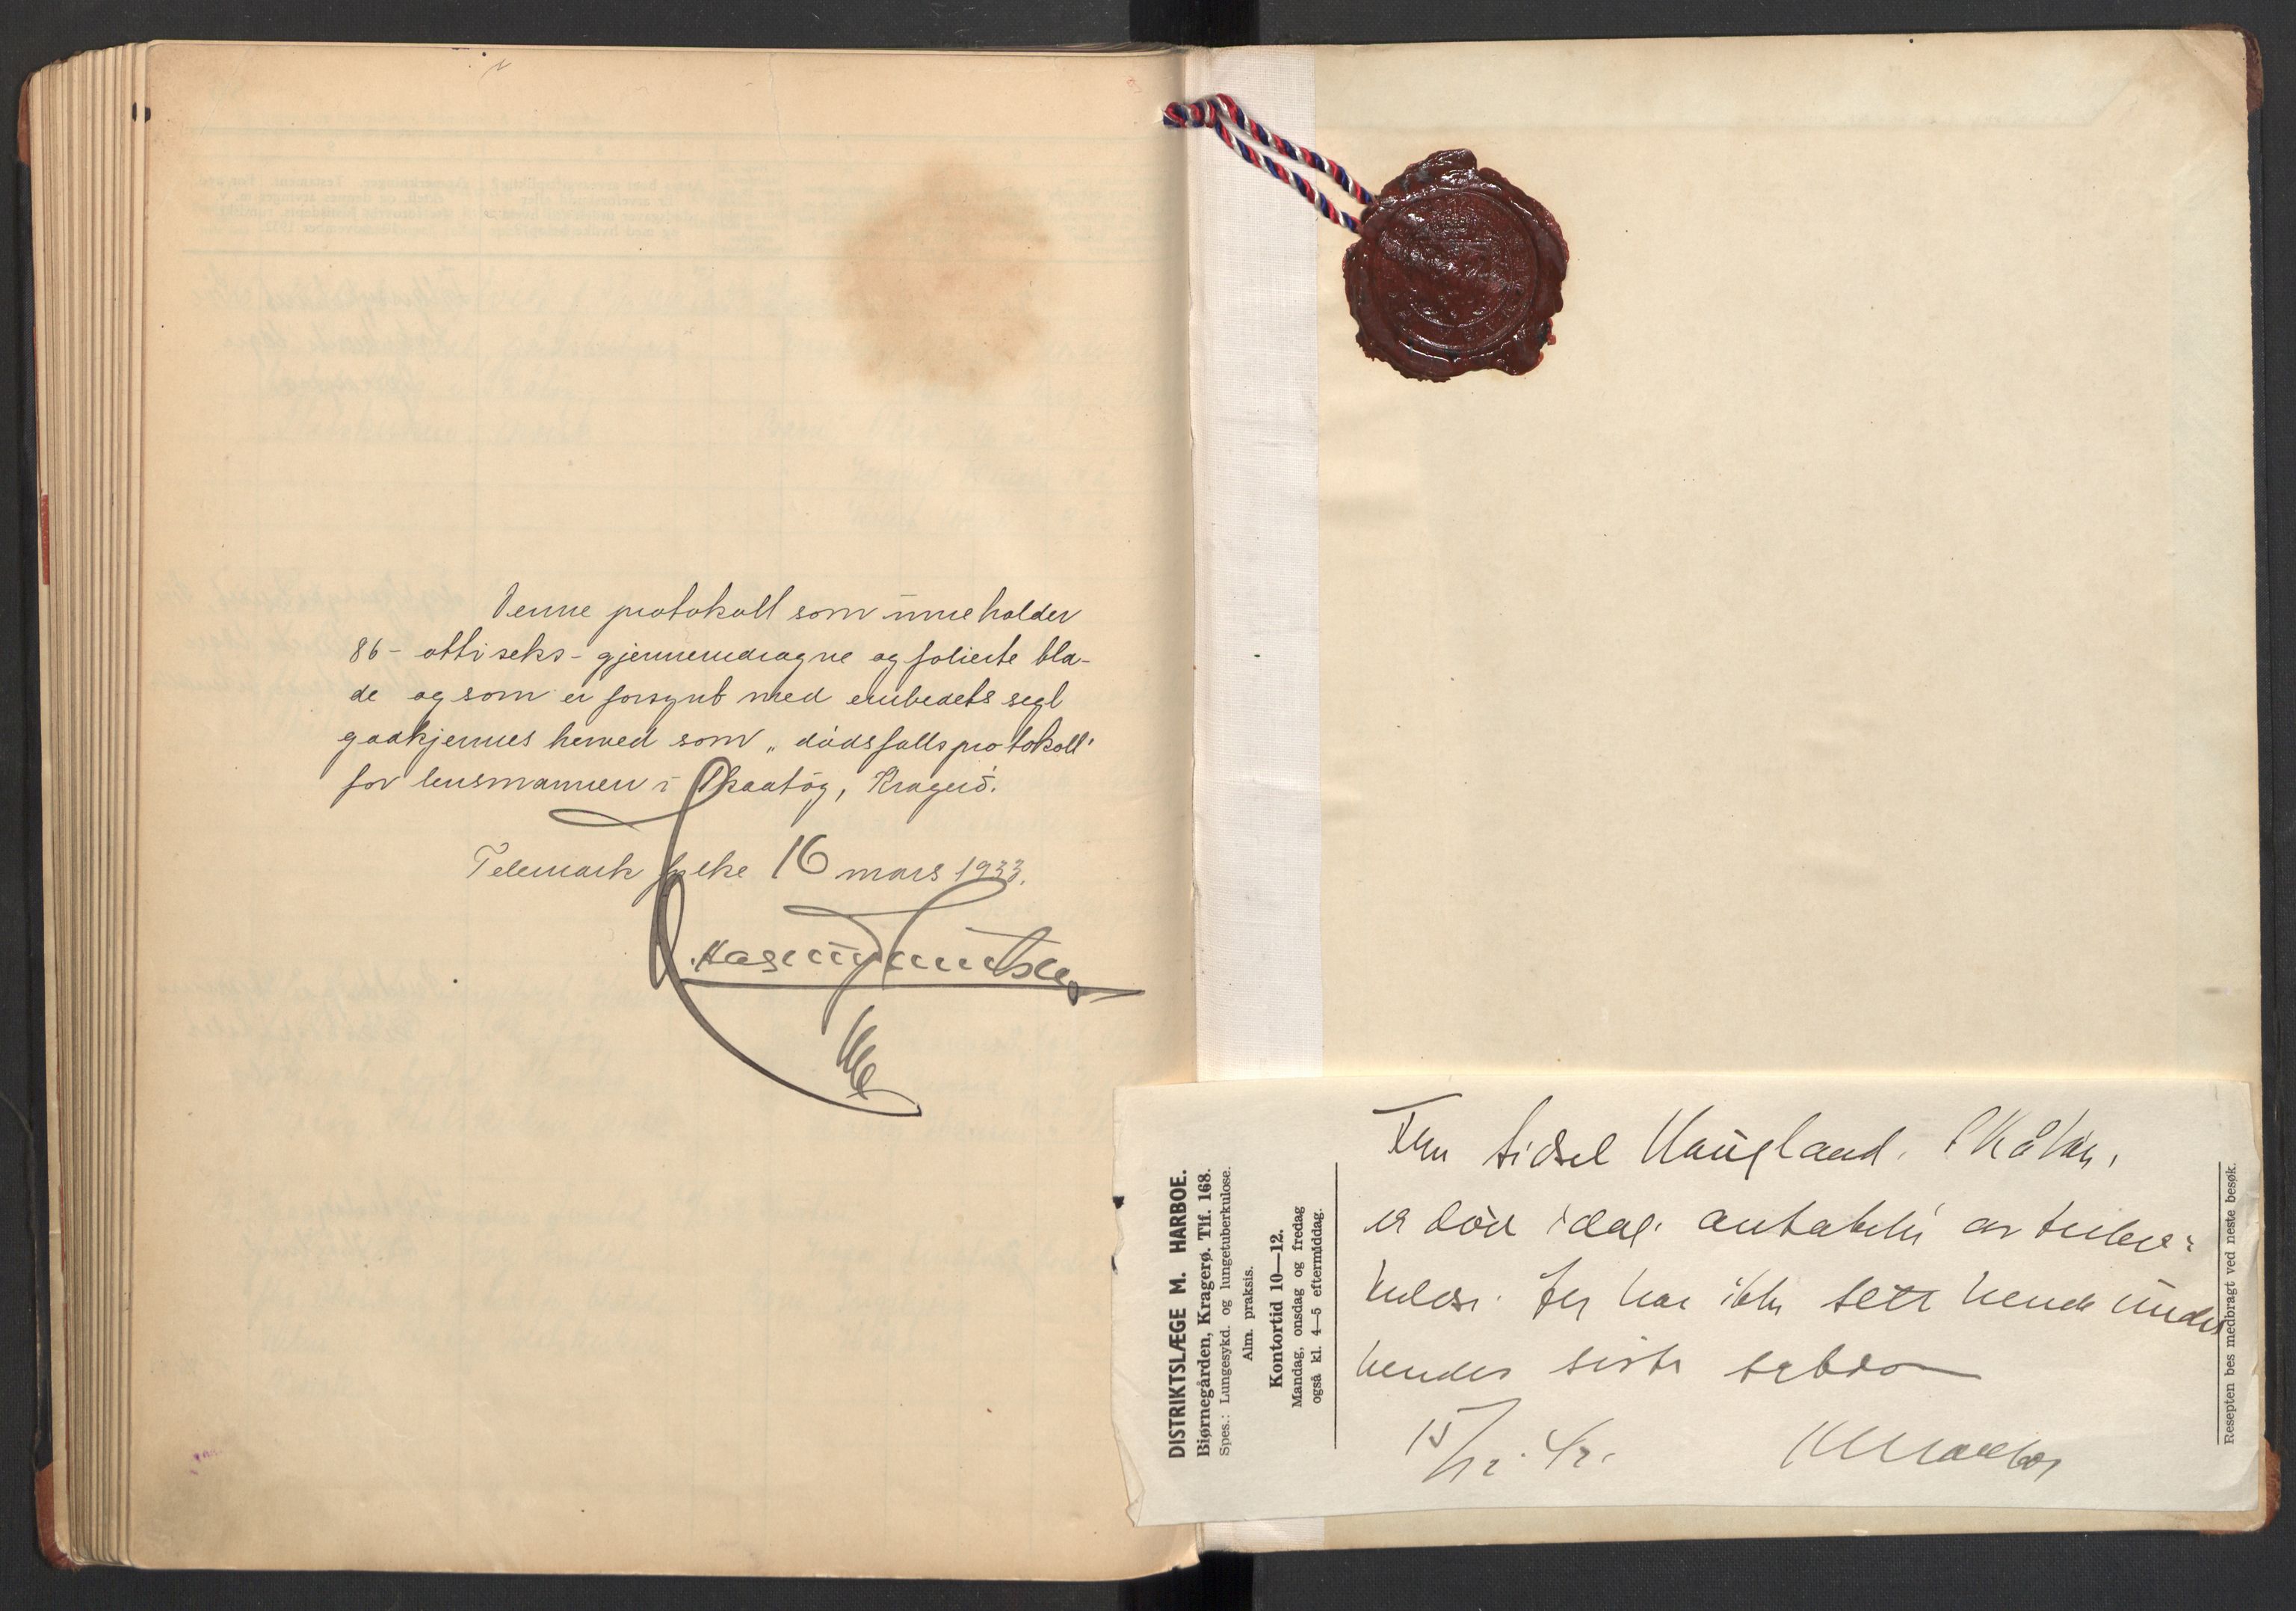 Denne protokoll som inneholder
86 - otti seks - gjennemdragne og folierte bla-
de og som er forsynt med embedets segl
godkjennes herved som „dødsfallsprotokoll"
for lensmannen i Skaatøy, Kragerø.
Telemark fylke 16 mars 1933.
DISTRIKTSLÆGE M. HARBOE.
Bjørnegården, Kragerø. Tlf. 168.
Spes.: Lungesykd. og lungetuberkulose.
Alm. praksis.
Kontortid 10—12.
Mandag, onsdag og fredag
også kl. 4—5 eftermiddag.
Fru Sidsel Haugland. Skåtøy,
er död idag. antakelig av tuber-
kulose. Jeg har ikke sett hende under
hendes siste
15/12. 42. M Harboe
Resepten bes medbragt ved neste besøk.